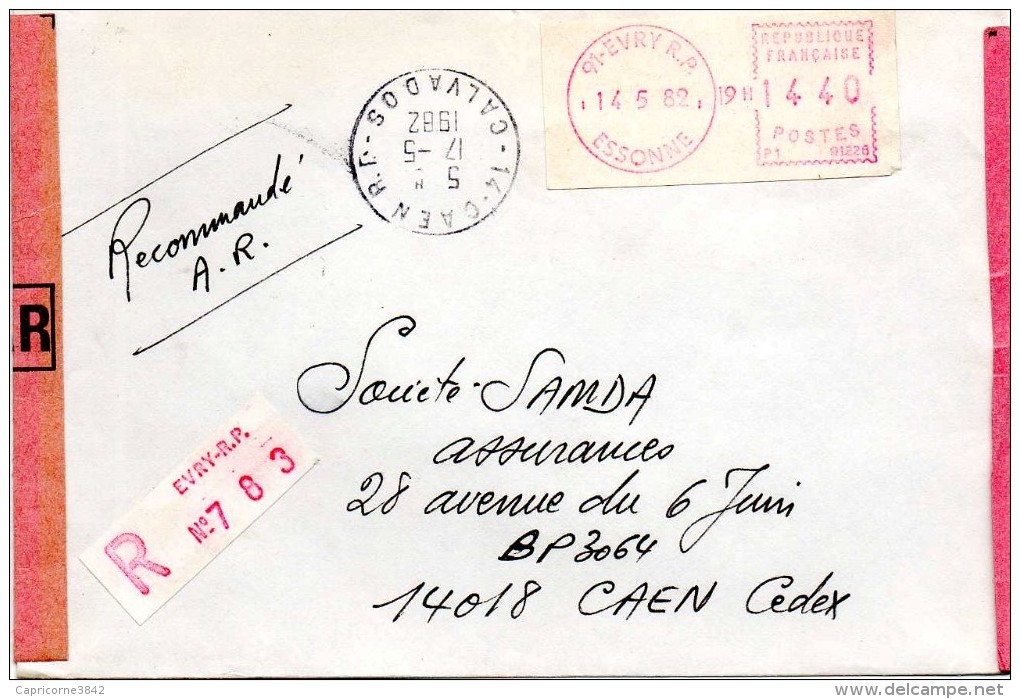 91-EVRY R.P.
14 5 82
19 H
ESSONNE
REPUBLIQUE
FRANÇAISE
1440
POSTES
P1 91226
14-CAEN R.P.-CALVADOS
5 H
17-5
1982
Recommandé
A.R.
R
EVRY-R.P.
N° 783
R
Société SAMDA
assurances
28 avenue du 6 Juin
BP 3064
14018 CAEN Cedex
Capricorne3842
delcampe.net